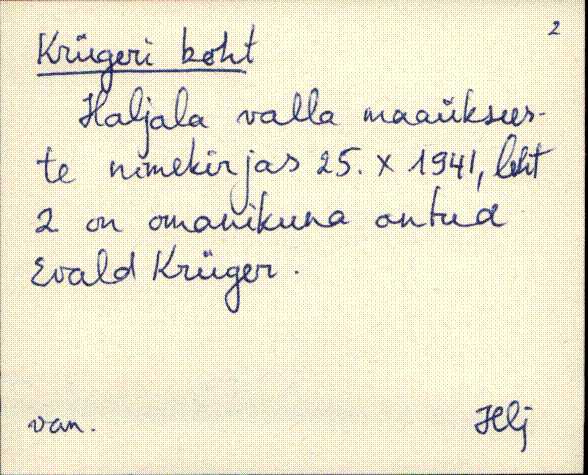 2
Krügeri koht
Haljala valla maaüksus-
te nimekirjas 25. X 1941, leht
2 on omanikuna antud
Evald Krüger.
van. Hlj